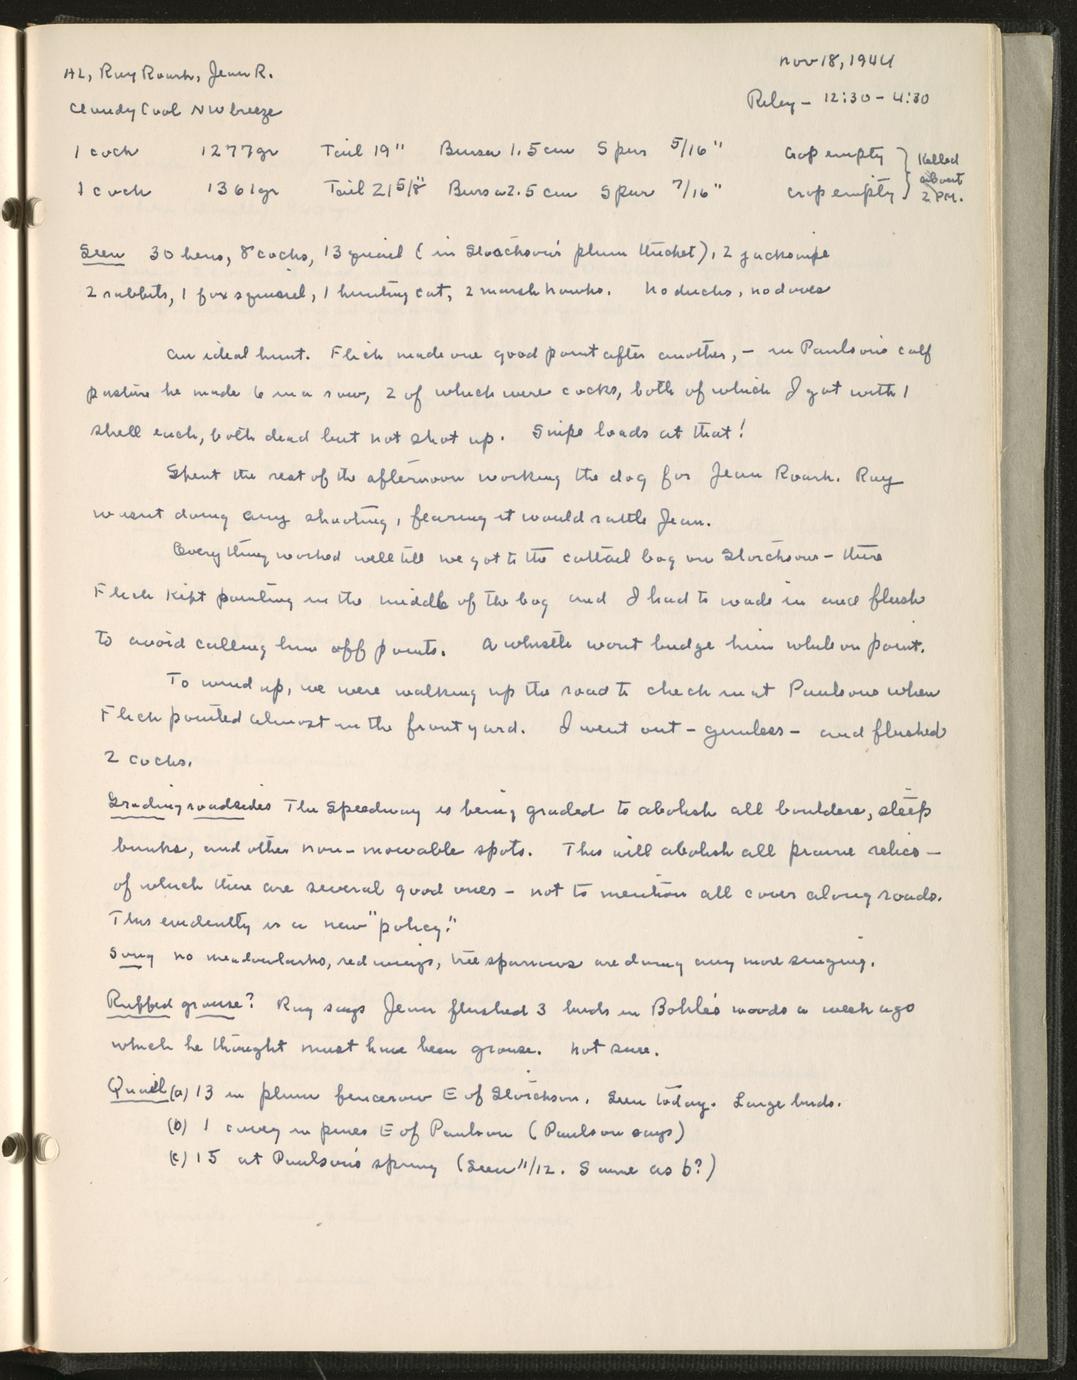 AL, Ray Roark, Jean R.
Nov 18, 1944
Cloudy Cool NW breeze
Riley - 12:30 - 4:30
1 cock 1277gr Tail 19" Bursa 1.5 cm Spur 5/16" Crop empty
1 cock 1361gr Tail 21 5/8" Bursa 2.5 cm Spur 7/16" crop empty
Killed about 2 PM.
Seen 30 hens, 8 cocks, 13 quail (in Storchson's plum thicket), 2 jacksnipe
2 rabbits, 1 fox squirrel, 1 hunting cat, 2 marsh hawks. No ducks, no doves
An ideal hunt. Flick made one good point after another, - in Paulson's calf
pasture he made 6 in a row, 2 of which were cocks, both of which I got with 1
shell each, both dead but not shot up. Snipe loads at that!
Spent the rest of the afternoon working the dog for Jean Roark. Ray
wasnt doing any shooting, fearing it would rattle Jean.
Everything worked well till we got to the cattail bog on Storchsons - there
Flick kept pointing in the middle of the bog and I had to wade in and flush
to avoid calling him off points. A whistle wont budge him while on point.
To wind up, we were walking up the road to check in at Paulsons when
Flick pointed almost in the front yard. I went out - gunless - and flushed
2 cocks.
Grading roadsides The Speedway is being graded to abolish all boulders, steep
banks, and other non-mowable spots. This will abolish all prairie relics -
of which there are several good ones - not to mention all cover along roads.
This evidently is a new "policy."
Song No meadowlarks, redwings, tree sparrows are doing any more singing.
Ruffed grouse? Ray says Jean flushed 3 birds in Bohle's woods a week ago
which he thought must have been grouse. Not sure.
Quail (a) 13 in plum fencerow E of Storchson. Seen today. Large birds.
(b) 1 covey in pines E of Paulson (Paulson says)
(c) 15 at Paulson's spring (Seen 11/12. Same as b?)